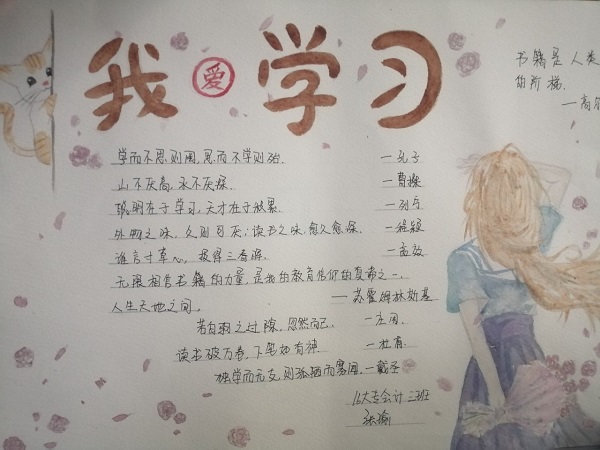 我爱学习
书籍是人类
的阶梯
—高尔
学而不思则罔,思而不学则殆. —孔子
山不厌高,水不厌深. —曹操
聪明在于学习,天才在于积累. —列宁
外物之味,久则可厌;读书之味,愈久愈深. —程颢
谁言寸草心,报得三春晖. —孟
无限相信书籍的力量,是我的教育信仰的真谛之一.
—苏霍姆林斯基
人生天地之间,
若白驹之过隙,忽然而已. —庄周.
读书破万卷,下笔如有神 —杜甫.
独学而无友,则孤陋而寡闻 —戴圣
16大专会计三班
张瑜